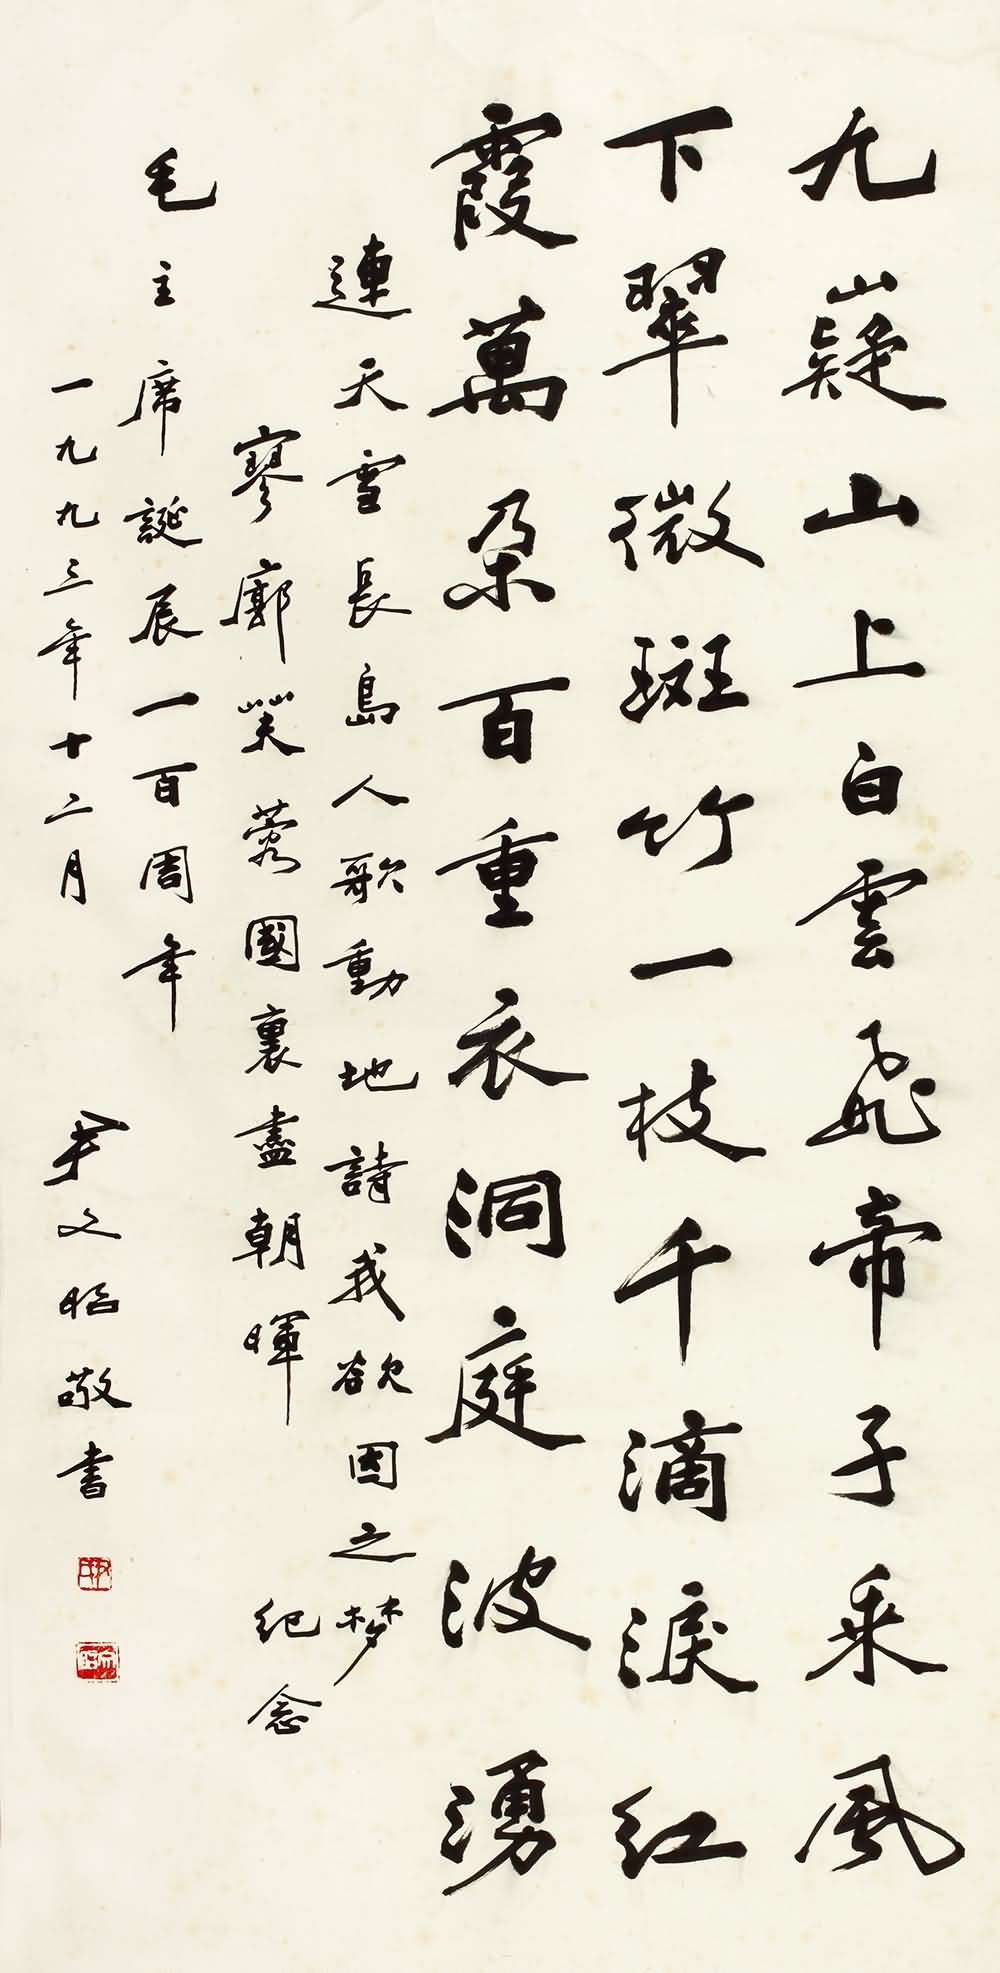 九嶷山上白雲飛帝子乘風
下翠微斑竹一枝千滴淚紅
霞萬朵百重衣洞庭波湧
連天雪長島人歌動地詩我欲因之梦
寥廓芙蓉國裏盡朝暉 紀念
毛主席誕辰一百周年
一九九三年十二月 尹文昭敬書